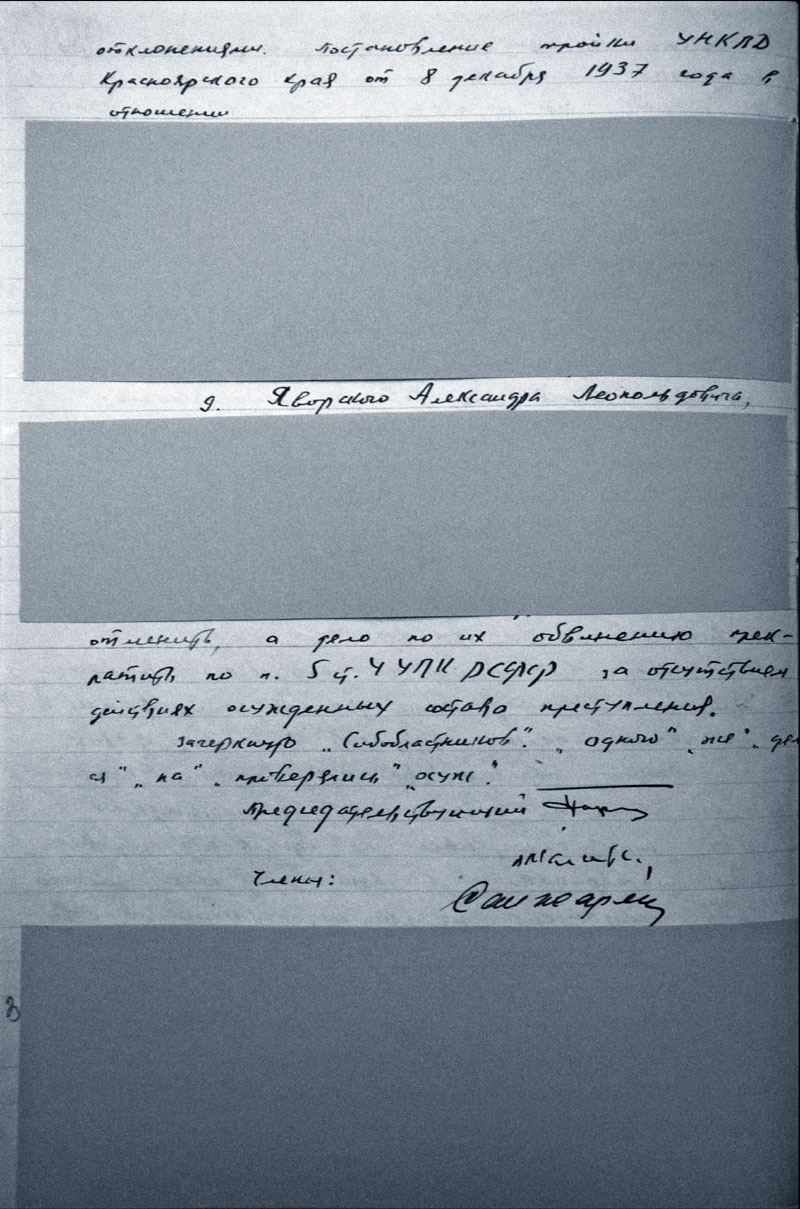 отклонениями. постановление тройки УНКВД
Красноярского края от 8 декабря 1937 года в
отношении
9. Яворского Александра Леопольдовича,
отменить, а дело по их обвинению прек-
ратить по п. 5 ст. 4 УПК РСФСР за отсутствием
действиях осужденных состава преступления.
Зачеркнуто „Сибобластников". „одного" „же". 
ся" „на" „проверялись" „осуж."
Председательствующий
Члены: